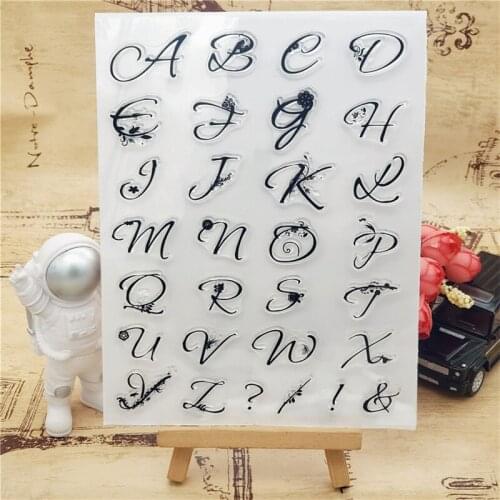 A B C D
E F G H
I J K L
M N O P
Q R S T
U V W X
Y Z ? / ! &
Notre-Dample